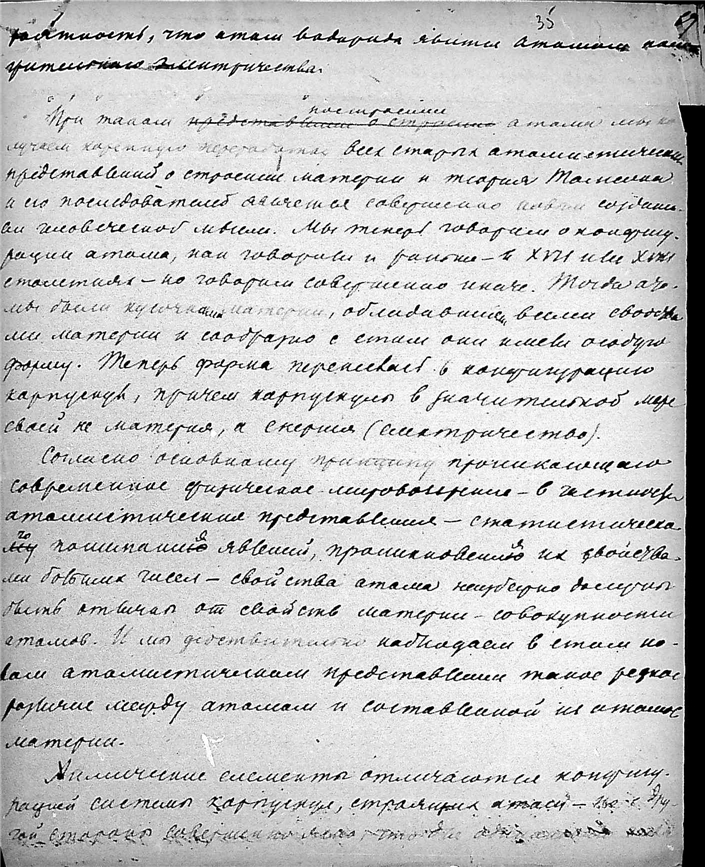 35
ятность, что атом водорода явится атомом поло
жительного электричества.
построении
При таком представлении о строении атома мы по
лучаем коренную переработку всех старых атомистических
представлений о строении материи и теория Томсона
и его последователей является совершенно новым создани-
ем человеческой мысли. Мы теперь говорим о конфигу-
рации атома, как говорили и раньше – в XVII или XVIII
столетиях – но говорим совершенно иначе. Тогда ато-
мы были кусочками материи, обладавшими всеми свойства
ми материи и сообразно с этим они имели особую
форму. Теперь форма перенесена в конфигурацию
корпускул, причем корпускулы в значительной мере
своей не материя, а энергия (электричество).
Согласно основному принципу проникающего
современное физическое мировоззрение – в частности
атомистические представления – статистическо
го понимания явлений, проникновения их свойства-
ми больших чисел – свойства атома неизбежно должны
быть отличны от свойств материи – совокупности
атомов. И мы действительно наблюдаем в этом но-
вом атомистическом представлении такое резкое
различие между атомом и составленной из атомов
материи.
Химические элементы отличаются конфигу-
рацией системы корпускул, строящих атом – но с дру-
гой стороны совершенно ясно, что